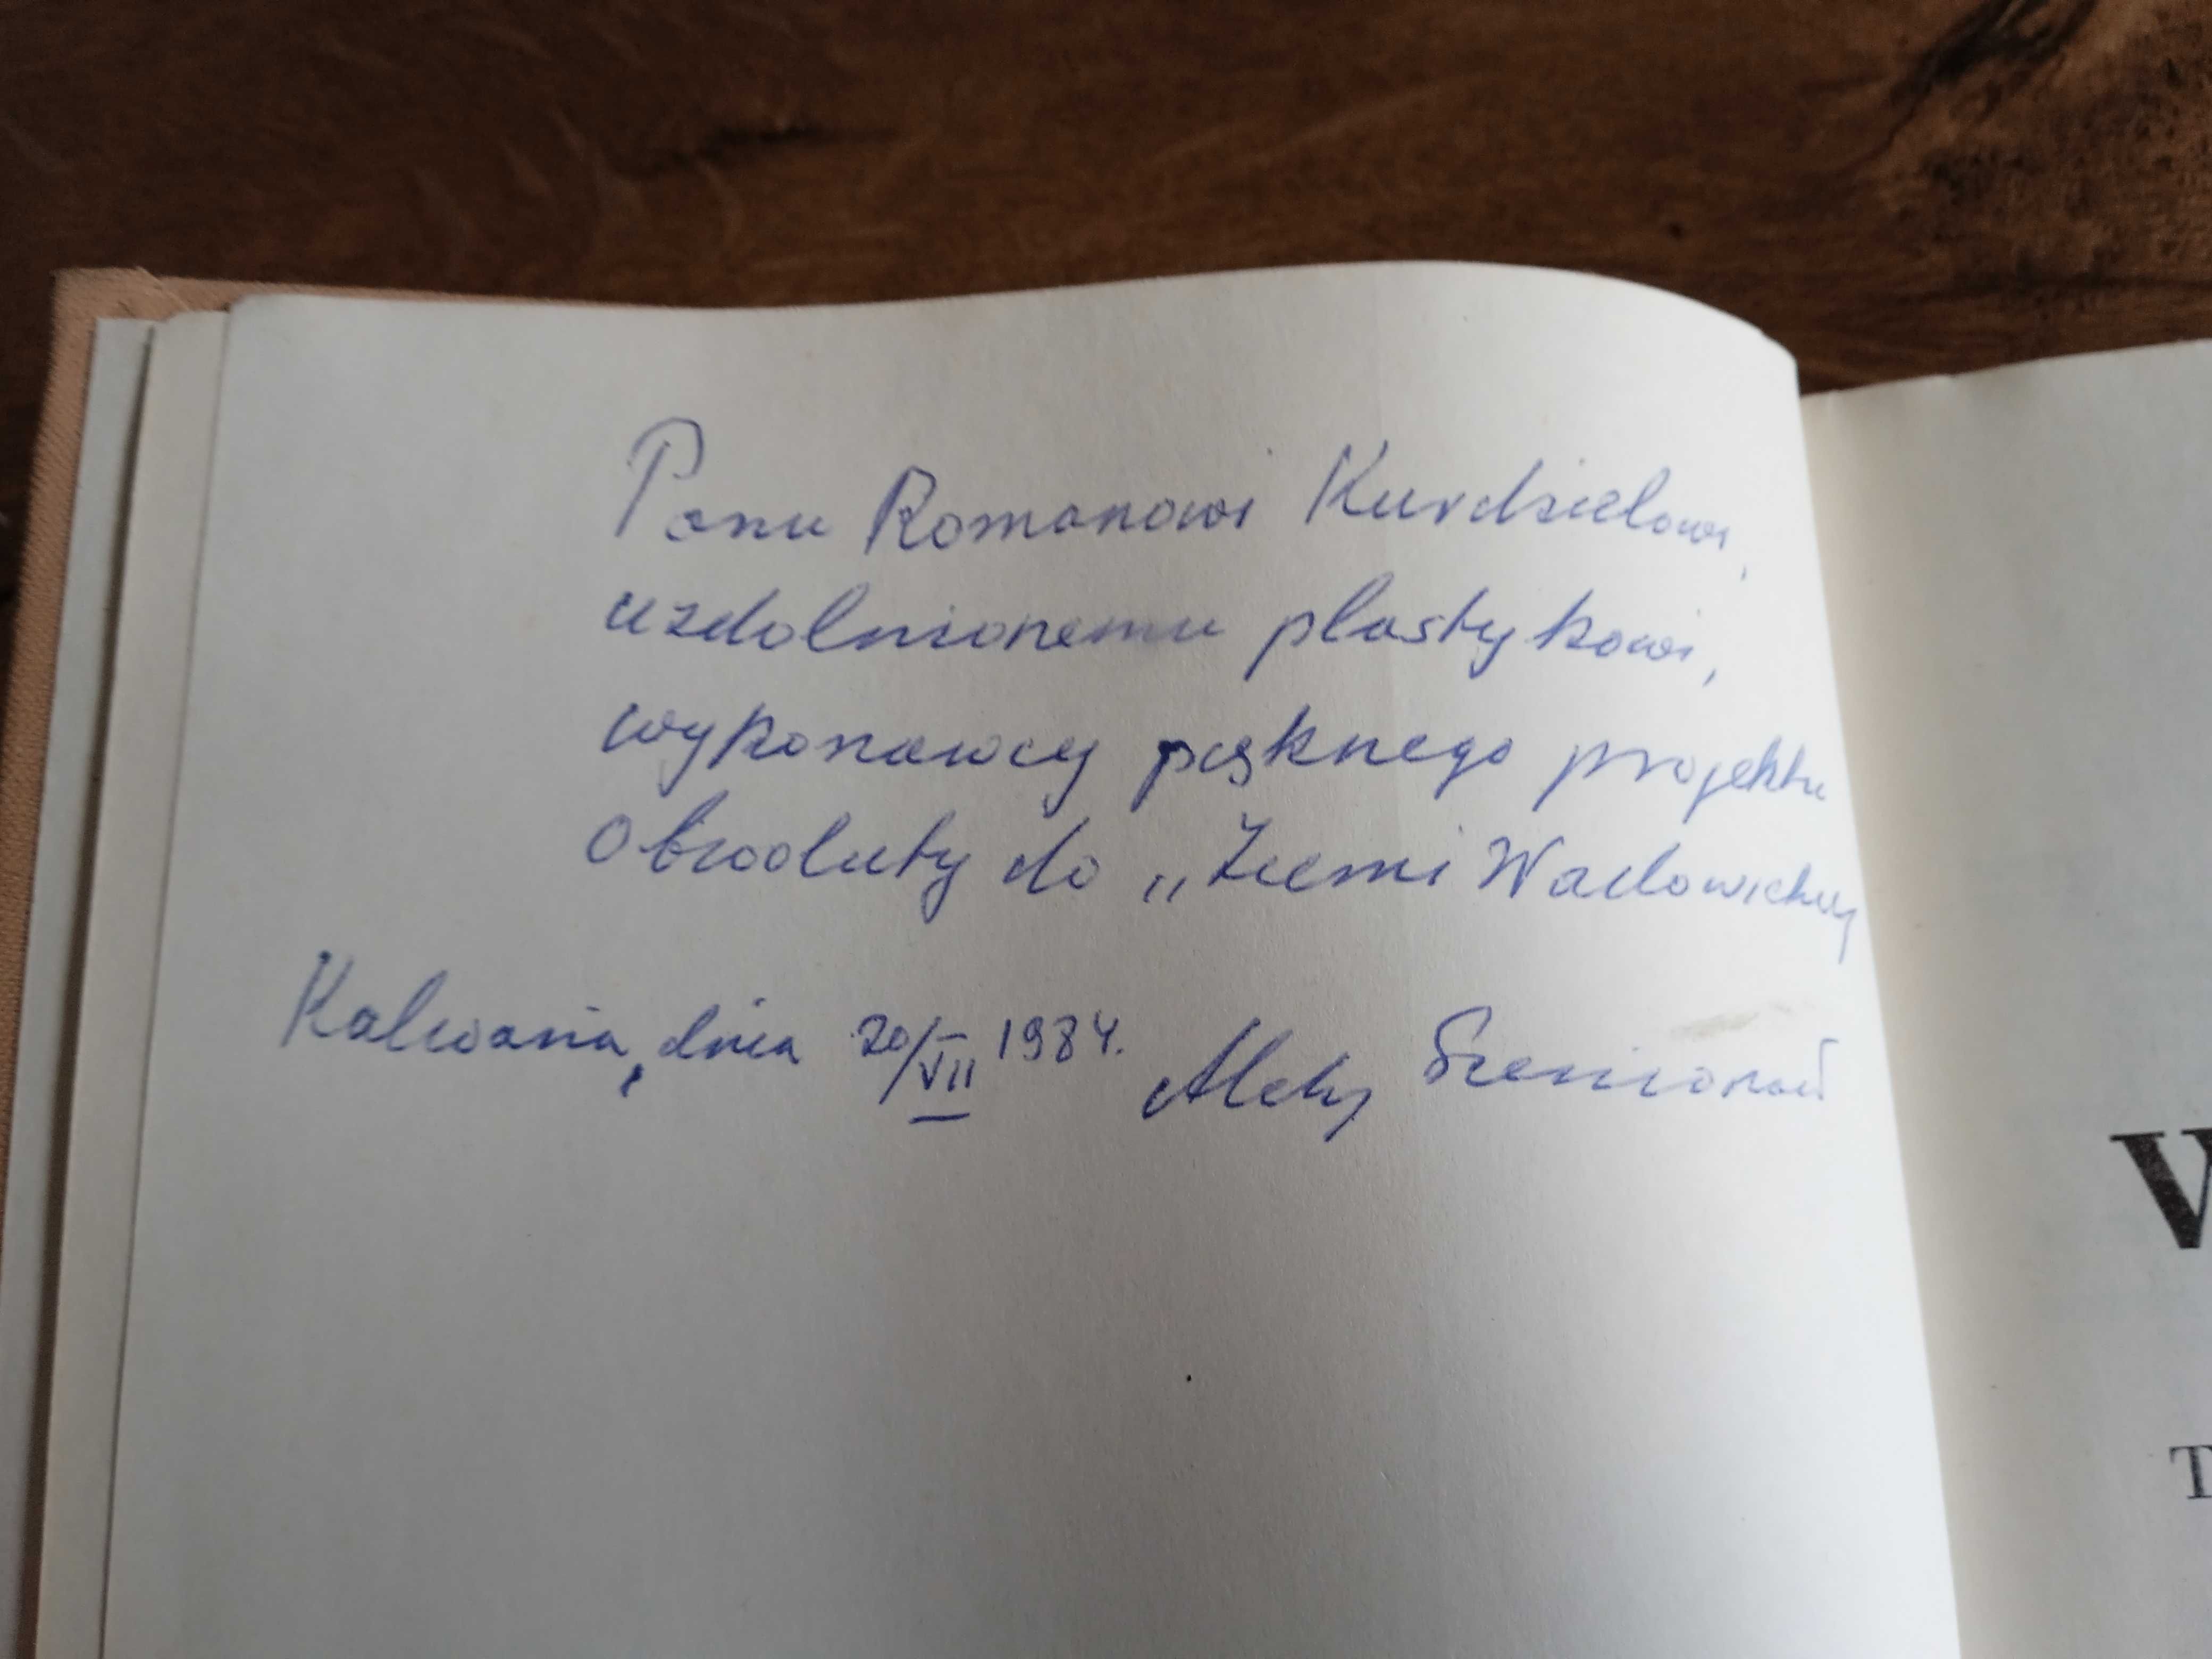 Panu Romanowi Kurdzielowi,
uzdolnionemu plastykowi,
wykonawcy pięknego projektu
obwoluty do „Ziemi Wadowickiej
Kalwaria, dnia 20/VII 1984. Aleksy Siemionow
W
T